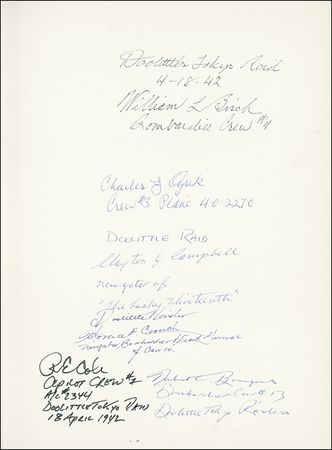 Doolittle's Tokyo Raid
4-18-42
William L Birch
Bombardier Crew #11
Charles J Ozuk
Crew #3 Plane 40-2270
DOOLITTLE RAID
Clayton J Campbell
navigator of
"The Lucky Thirteenth"
Doolittle Raider
Horace E Crouch
Navigator, Bombardier & Front Gunner
of Crew 10.
R E Cole
COPILOT CREW #1
A/C # 2344
DOOLITTLE TOKYO RAID
18 APRIL 1942
Robert C Bourgeois
Bombardier Crew # 13
Doolittle Tokyo Raiders